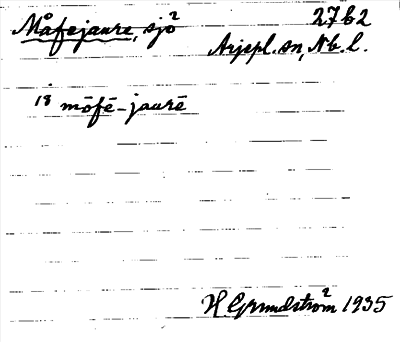 Måfejaure, sjö² 27b2
Arjepl. sn, Nb. l.
18 mōfē-jaurē
H Grundström 1935